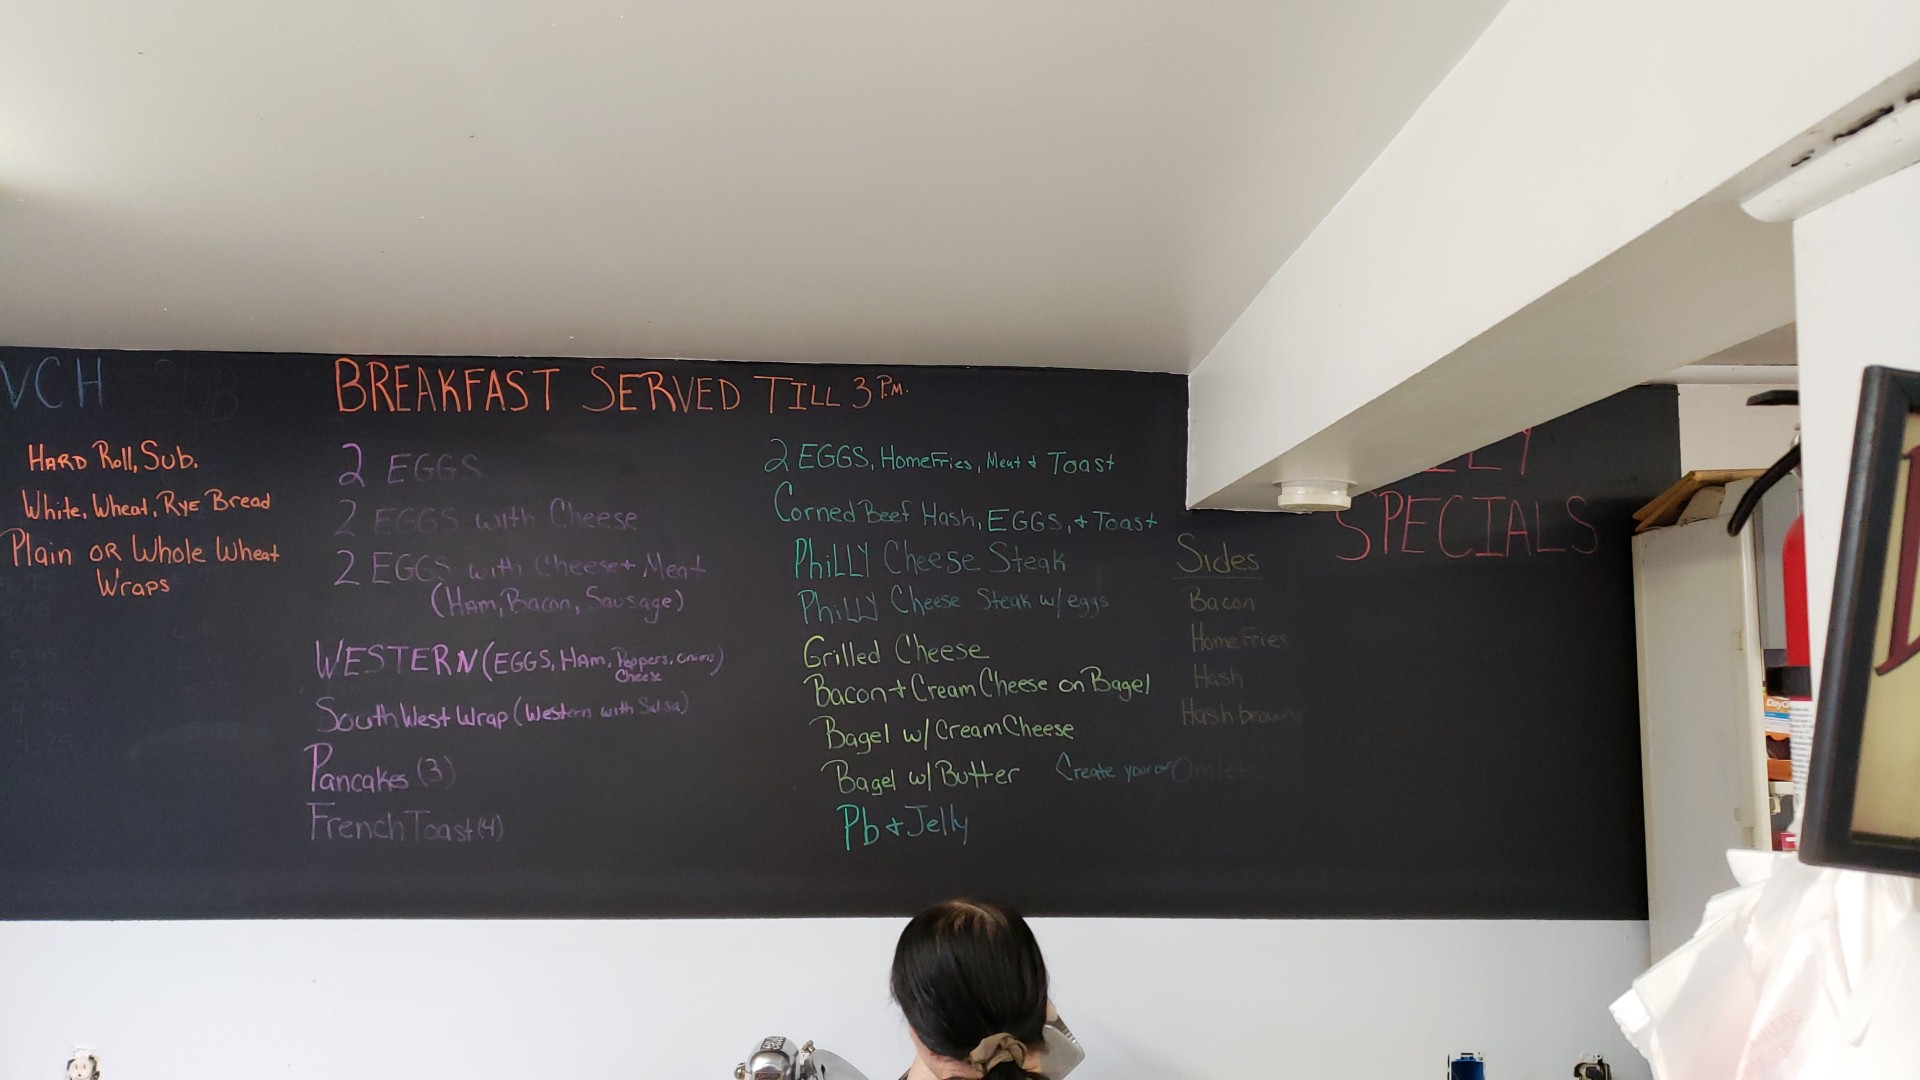 VCH
HARD Roll, Sub.
White, Wheat, RYE Bread
Plain OR Whole Wheat
Wraps
BREAKFAST SERVED TILL 3 P.M.
2 EGGS
2 EGGS with Cheese
2 EGGS with Cheese + Meat
(Ham, Bacon, Sausage)
WESTERN (EGGS, HAM, Peppers, onions)
Cheese
SouthWest Wrap (Western with Salsa)
Pancakes (3)
French Toast (4)
2 EGGS, HomeFries, Meat + Toast
Corned Beef Hash, EGGS, + Toast
PhiLLY Cheese Steak
PhiLLY Cheese Steak w/ eggs
Grilled Cheese
Bacon + Cream Cheese on Bagel
Bagel w/ Cream Cheese
Bagel w/ Butter
Pb + Jelly
Sides
Bacon
HomeFries
Hash
Hash browns
Create your own Omlets
LY
SPECIALS